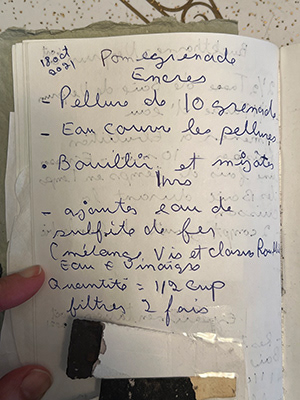 18 oct
2021
Pomegrenade
Encres
- Pellure de 10 grenade
- Eau couvre les pellures
• Bouillir et
1hrs
- ajoutes eau de
sulfite de fer
(mélange, Vis et clous Rouillé
Eau & Vinaigre
Quantité = 1/2 cup
filtres 2 fois